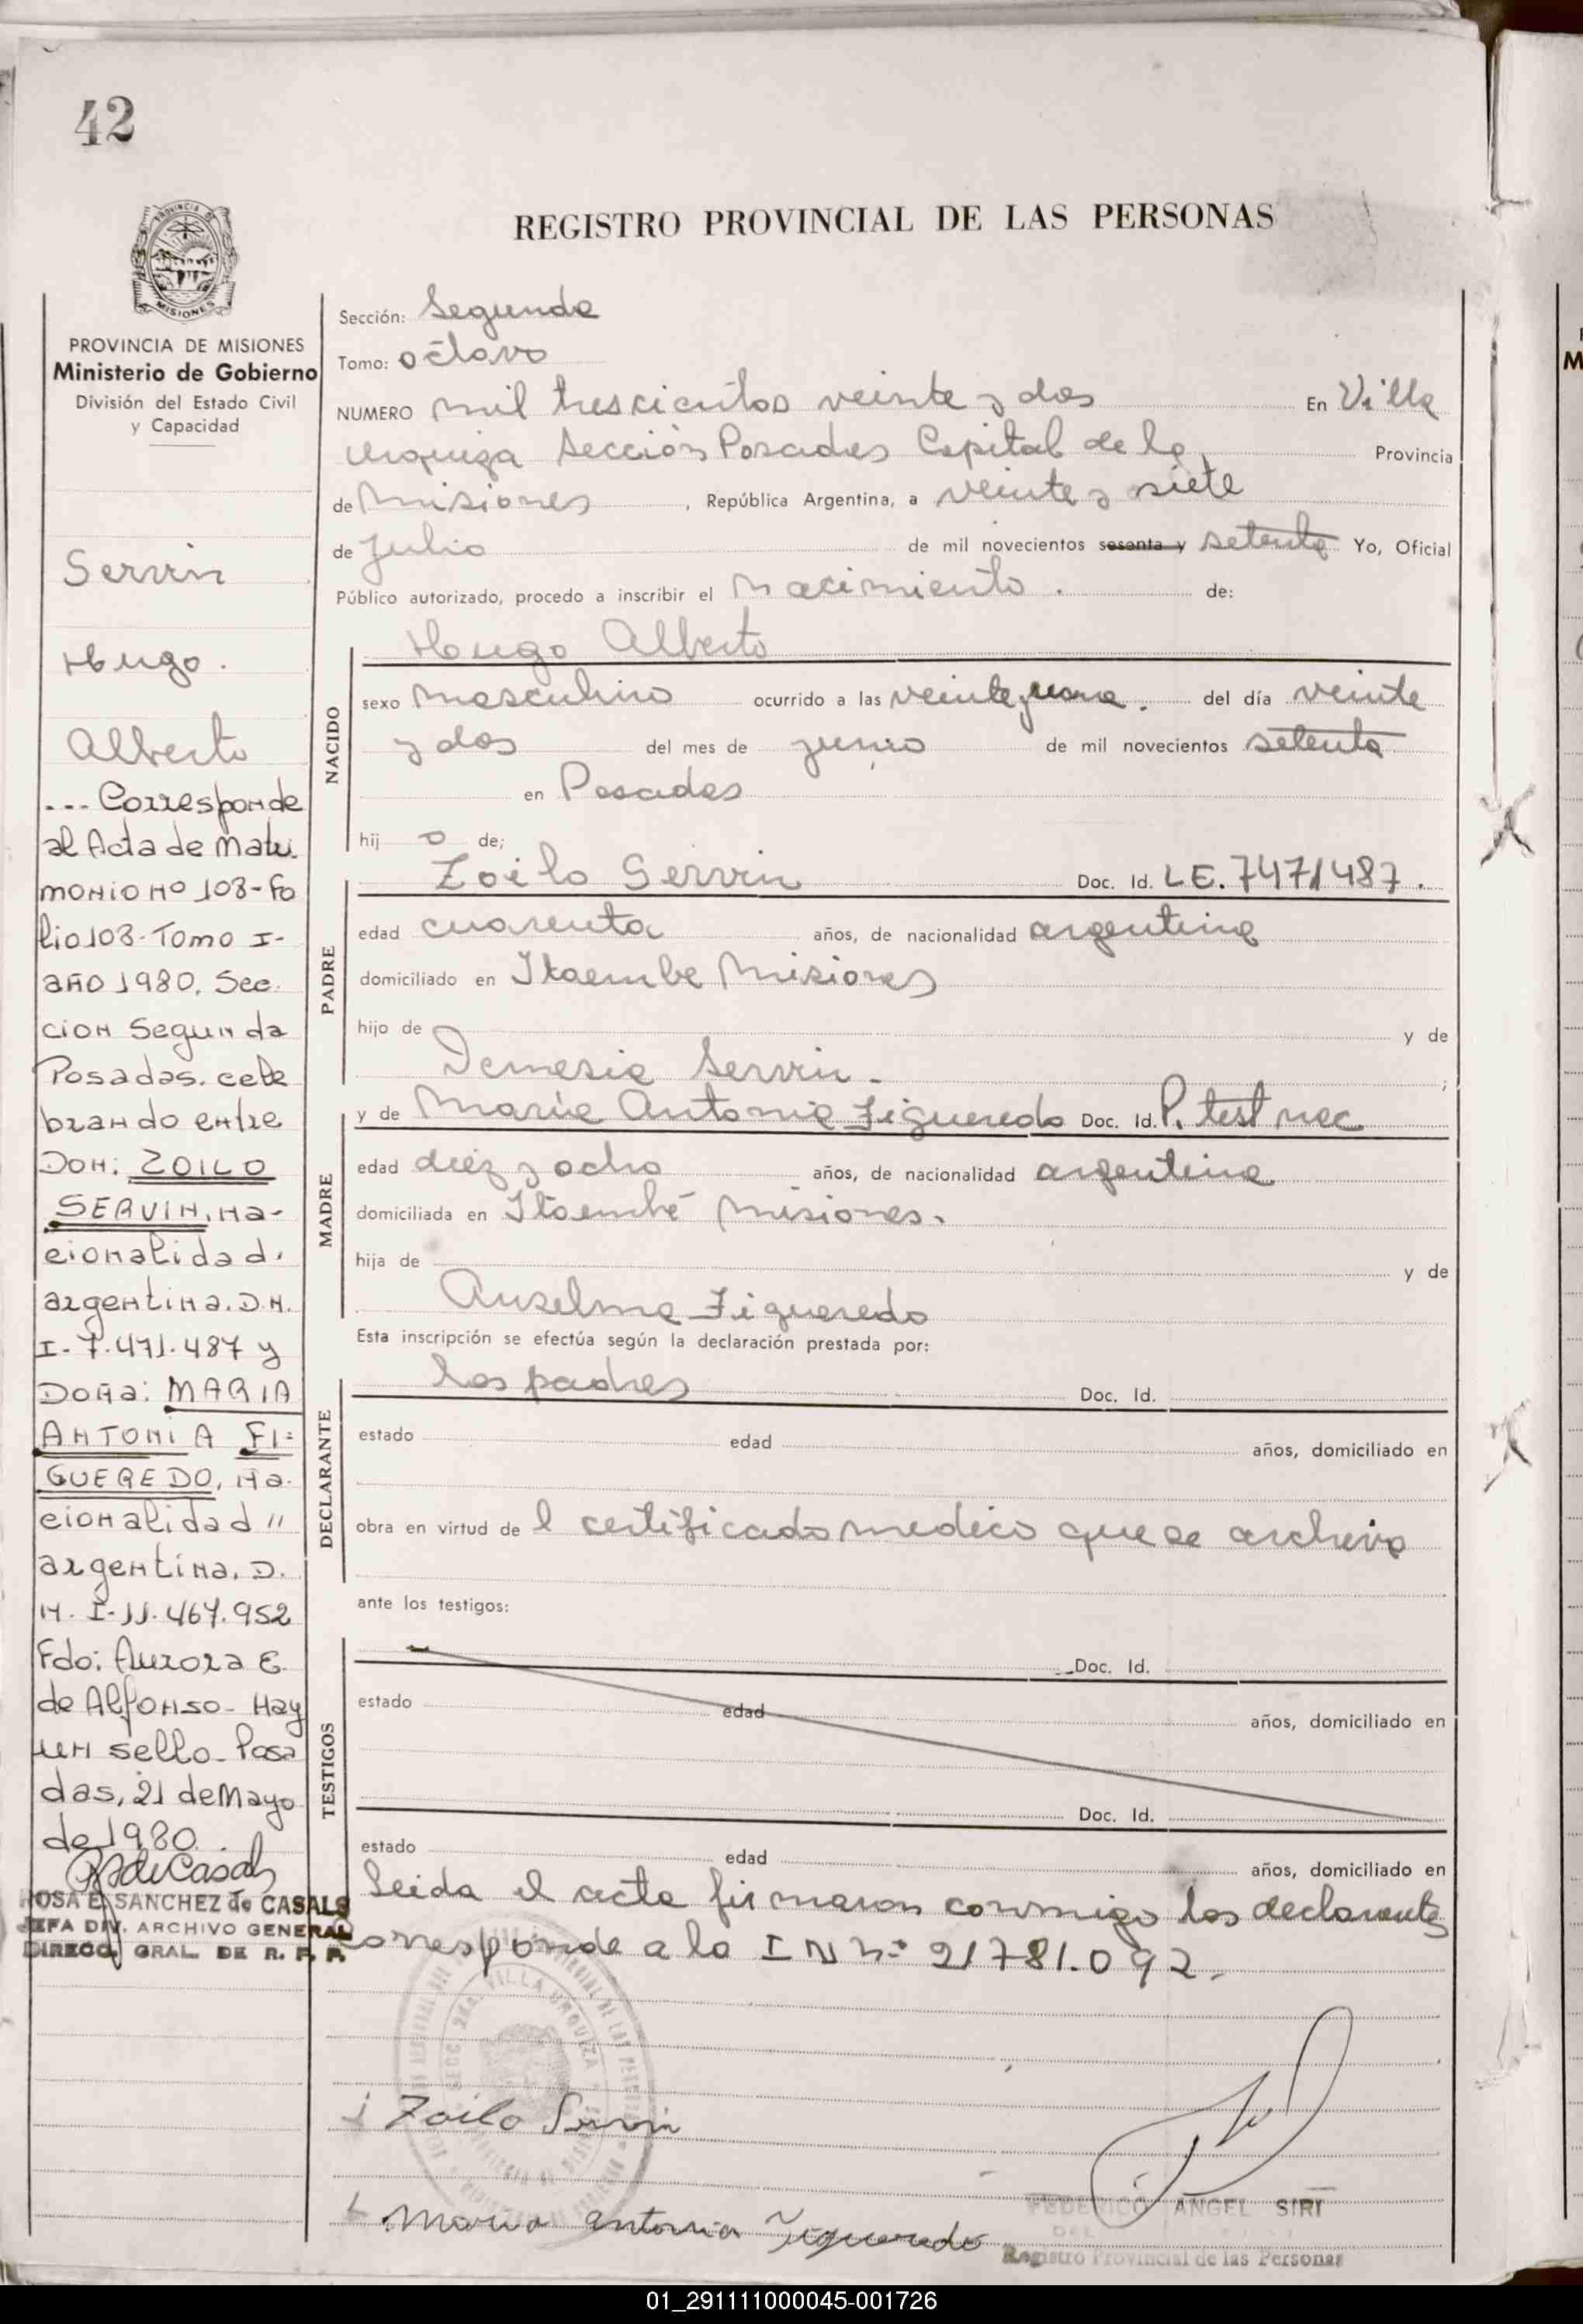 42
REGISTRO PROVINCIAL DE LAS PERSONAS
PROVINCIA DE
MISIONES
PROVINCIA DE MISIONES
Ministerio de Gobierno
División del Estado Civil
y Capacidad
Servin
Hugo.
Alberto
... Corresponde
al Acta de Matri
monio nº 108-Fo
lio 108-Tomo I-
año 1980. Sec
cion Segunda
Posadas. cele
brando entre
Don: ZOILO
SERVIN, na-
cionalidad.
argentina. D.N.
I-7.471.487 y
Doña: MARIA
ANTONIA FI=
GUEREDO, na.
cionalidad "
argentina. D.
N. I-11.467.952
Fdo: Aurora E.
de Alfonso- Hay
un sello- Posa
das, 21 de Mayo
de 1980.
ROSA E. SANCHEZ de CASALS
JEFA DIV. ARCHIVO GENERAL
DIRECC. GRAL. DE R. P. P.
Sección: Segunda
Tomo: octavo
NUMERO mil trescientos veinte y dos En Villa
Urquiza Sección Posadas Capital de la Provincia
de Misiones , República Argentina, a veinte y siete
de Julio de mil novecientos sesenta y setenta Yo, Oficial
Público autorizado, procedo a inscribir el nacimiento . de:
Hugo Alberto
NACIDO
sexo masculino ocurrido a las veinte y una. del día veinte
y dos del mes de junio de mil novecientos setenta
en Posadas
hij o de;
Zoilo Servin Doc. Id. LE. 7471487.
PADRE
edad cuarenta años, de nacionalidad argentina
domiciliado en Itaembe Misiones
hijo de y de
Demesia Servin. ;
y de Maria Antonia Figueredo Doc. Id. P. test nac
MADRE
edad diez y ocho años, de nacionalidad argentina
domiciliada en Itaembé Misiones.
hija de y de
Anselma Figueredo
Esta inscripción se efectúa según la declaración prestada por:
los padres Doc. Id.
DECLARANTE
estado edad años, domiciliado en
obra en virtud de l certificado medico que se archiva
ante los testigos:
Doc. Id.
TESTIGOS
estado edad años, domiciliado en
Doc. Id.
estado edad años, domiciliado en
Leida el acta firmaron conmigo los declarantes
corresponde a la I N nº 21781.092.
SECC. 2da. VILLA URQUIZA
Zoilo Servin
Maria Antonia Figueredo
FEDERICO ANGEL SIRI
Registro Provincial de las Personas
01_291111000045-001726